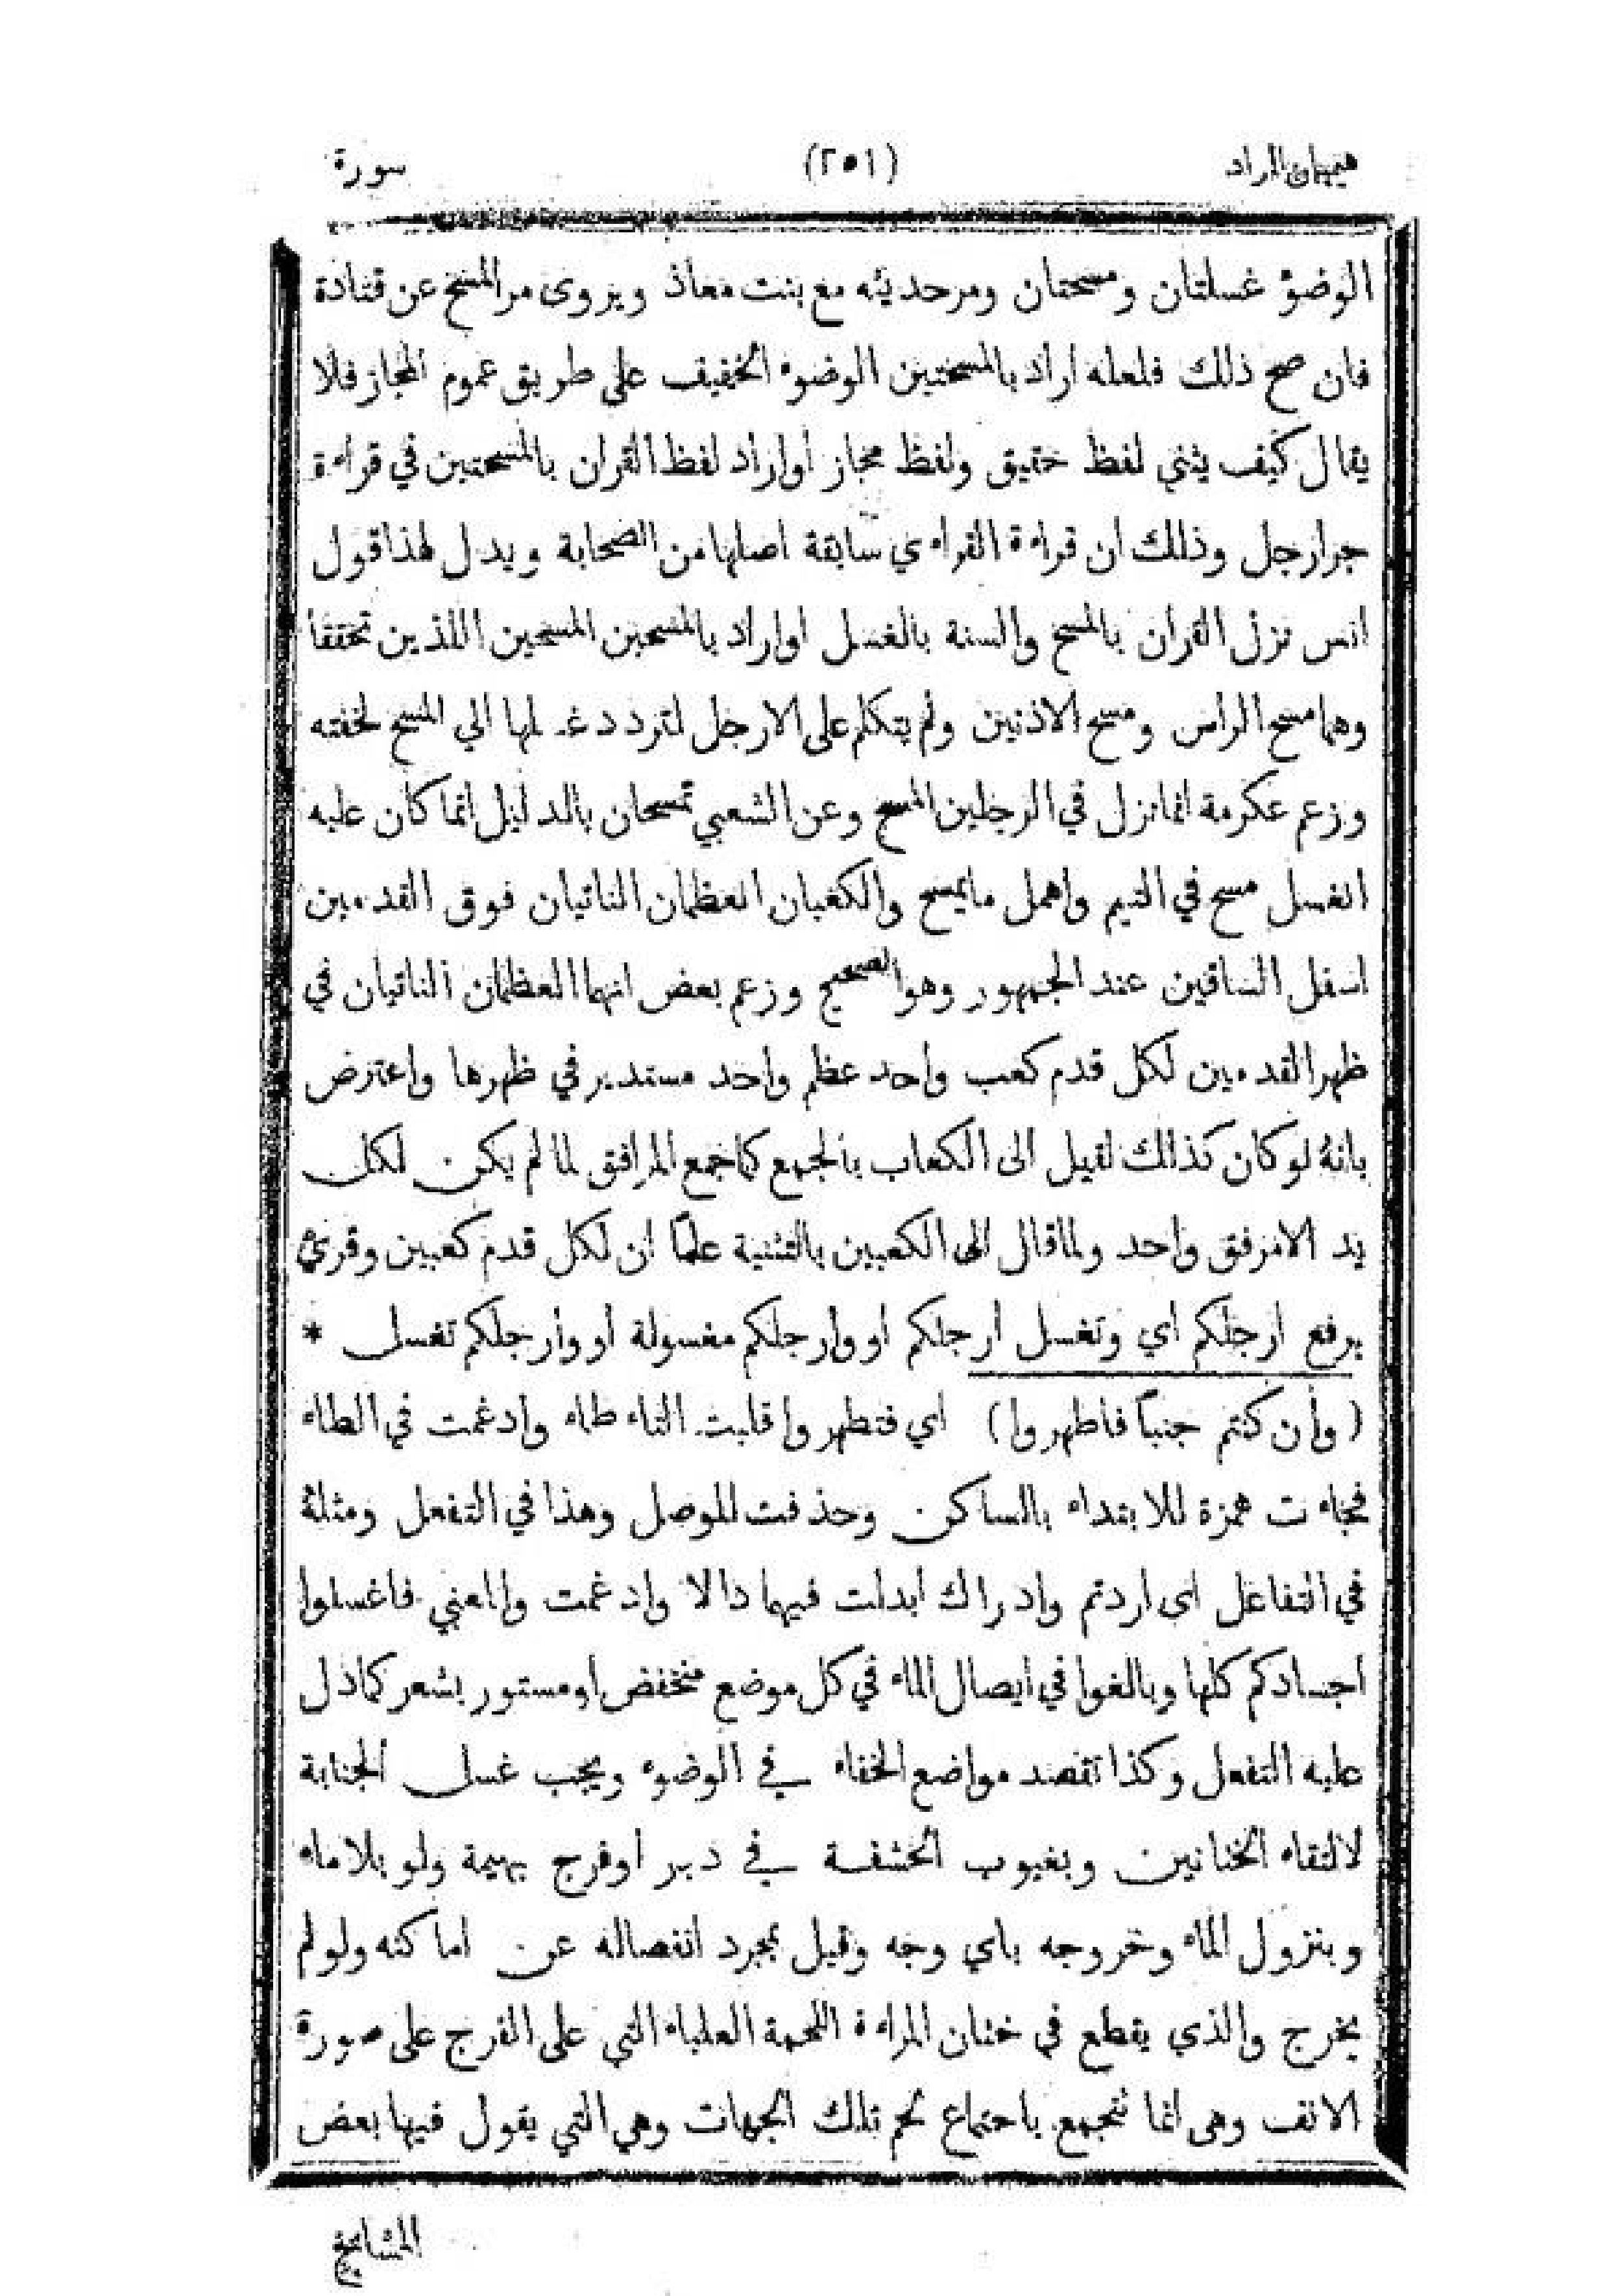 هيميان الزاد (٢٥١) سورة
الوضوء غسلتان ومسحتان ومر حديثه مع بنت معاذ ويروى مر المسح عن قتادة
فان صح ذلك فلعله اراد بالمسحتين الوضوء الخفيف على طريق عموم المجاز فلا
يقال كيف يثني لفظ حقيق ولفظ مجاز أو اراد لفظ القران بالمسحتين في قراءة
جر ارجل وذلك ان قراءة القراء ي سابقة اصلها من الصحابة ويدل لهذا قول
انس نزل القران بالمسح والسنة بالغسل او اراد بالمسحين المسحين اللذين تحققا
وهما مسح الراس ومسح الاذنين ولم يتكلم على الارجل لتردد غسلها الي المسح لخفته
وزعم عكرمة انما نزل في الرجلين المسح وعن الشعبي تمسحان بالدليل انما كان عليه
الغسل مسح في التيم واهمل ما يمسح والكعبان العظمان الناتيان فوق القدمين
اسفل الساقين عند الجمهور وهو الصحيح وزعم بعض انهما العظمان الناتيان في
ظهر القدمين لكل قدم كعب واحد عظم واحد مستدير في ظهرها واعترض
بانه لو كان كذلك لقيل الى الكعاب بالجمع كما جمع المرافق لما لم يكن لكل
يد الا مرفق واحد ولما قال الى الكعبين بالتثنية علمنا ان لكل قدم كعبين وقرئ
برفع ارجلكم اي وتغسل ارجلكم او وارجلكم مغسولة أو وأرجلكم تغسل *
(وأن كنتم جنبا فاطهروا) اي فتطهروا قلبت التاء طاء وادغمت في الطاء
فجاءت همزة للابتداء بالساكن وحذفت للوصل وهذا في التفعل ومثله
في التفاعل اي اردتم وادراك ابدلت فيهما دالا وادغمت والمعني فاغسلوا
اجسادكم كلها وبالغوا في ايصال الماء في كل موضع منخفض او مستور بشعر كما دل
عليه التفعل وكذا تقصد مواضع الخفاء في الوضوء ويجب غسل الجنابة
لالتقاء الختانين وبغيوب الحشفة في دبر أو فرج بهيمة ولو بلا ماء
وبنزول الماء وخروجه باي وجه وقيل بمجرد انفصاله عن اماكنه ولو لم
يخرج والذي يقطع في ختان المراءة اللحمة العلياء التي على الفرج على صورة
الانف وهى انما تجمع باجتماع لحم تلك الجهات وهي التي يقول فيها بعض
المشايخ